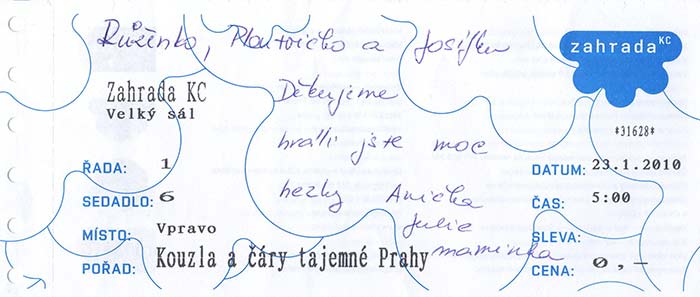 Růženko, a Josífku
zahrada KC
Zahrada KC
Velký sál
Děkujeme
hráli jste moc
hezky Anička
Julie
maminka
*31628*
ŘADA: 1
SEDADLO: 6
MÍSTO: Vpravo
POŘAD: Kouzla a čáry tajemné Prahy
DATUM: 23.1.2010
ČAS: 5:00
SLEVA:
CENA: 0,-